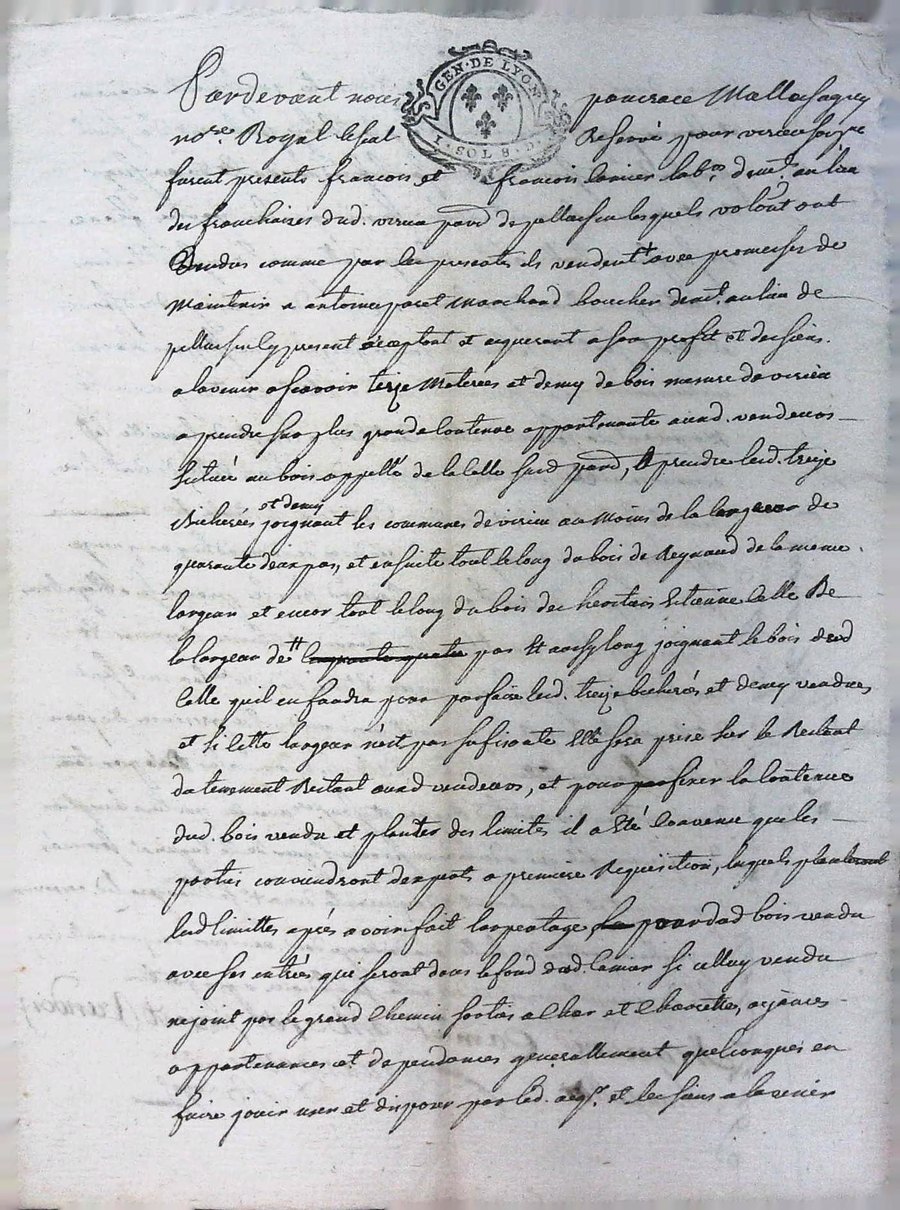 GEN · DE LYON
1 · SOL 8 · D
Pardevant nous pancrace Mallassagny
no.re Royal Reservé pour virieu
furent presents francois et francois lab.r dem.t au lieu
des franchaises dud. virieu par. de pellussin lesquels volont. ont
vendus comme par les presentes ils vendent avec promesses de
Maintenir a antoine Marchand boucher dem.t au lieu de
pellussin ycy present acceptant et aquerant a son profit et des siens
a lavenir a scavoir treize Meterées et demy de bois mesure de virieu
a prendre sur plus grande contenue appartenante auxd. vendeurs
Situéé au bois appellé de la Celle surd. par., a prendre lesd. treize
Bicherées et demy joignant les communes de virieu au Moins de la largeur de
quarante deux pas, et ensuite tout le long du bois de Reynaud de la meme
largeur et encor tout le long du bois des heritiers Estienne Celle De
la largeur de pas joignant le bois dud
Celle quil en faudra pour parfaire lesd. treize bicherées et demy vendues
et si cette largeur n'est pas sufisante Elle sera prise sur le Restant
du tenement Restant auxd vendeurs, et pour fixer la Contenue
dud. bois vendu et planter des limites il a Eté Convenu que les
parties conviendront dexperts a premiere Requisition, lesquels planteront
lesd limittes après avoir fait larpentage dud bois vendu
avec ses entrés qui seront dans le fond dud. si celluy vendu
nejoint pas le grand Chemin sorties a Char et Charettes, aisances
appartenances et dependances generallement quelconques en
faire jouir user et disposer par led. aq.r et les siens a lavenir